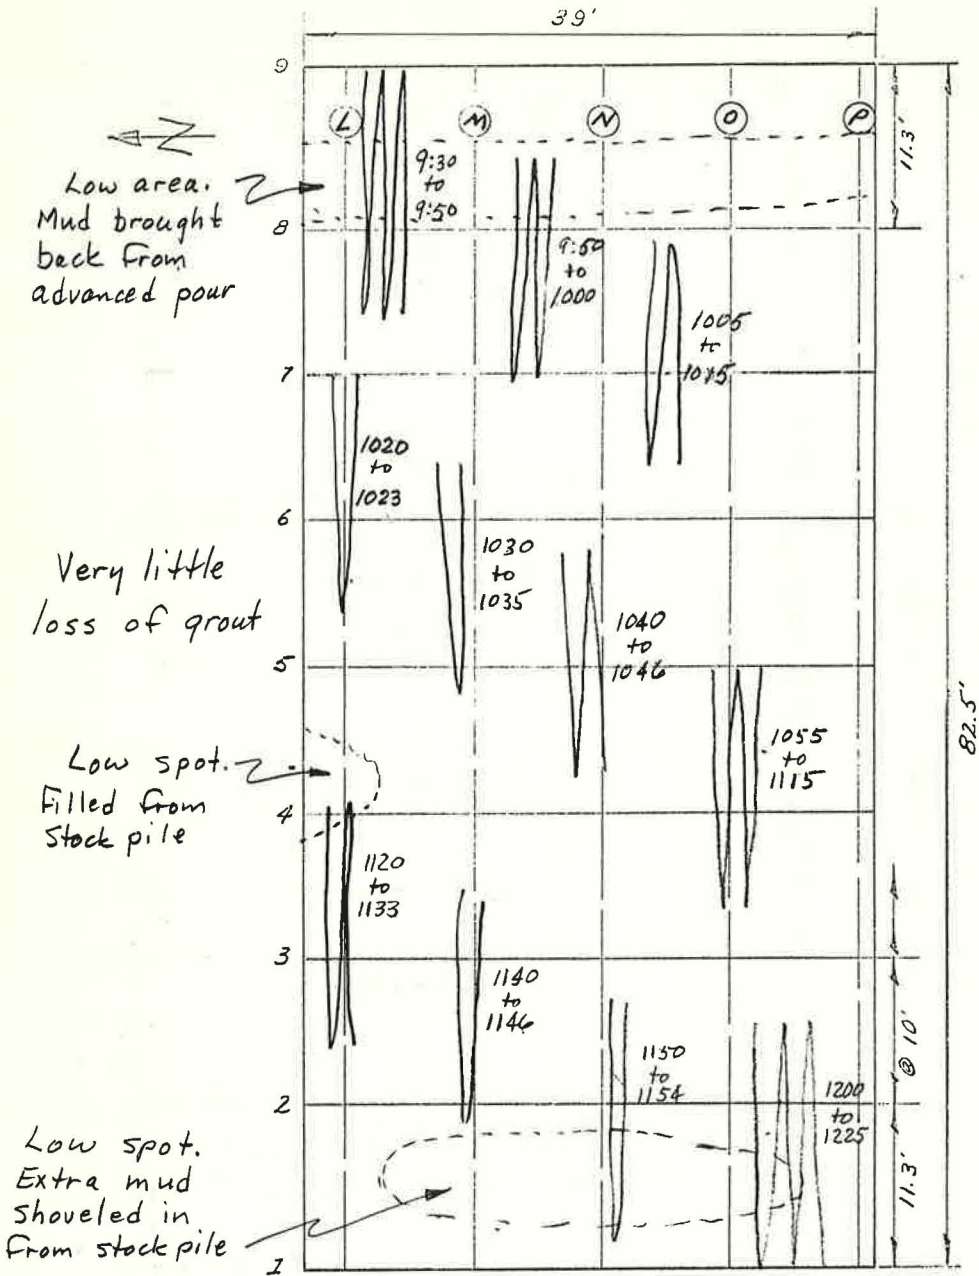 39'
9
L
M
N
O
P
11.3'
N
Low area.
Mud brought
back from
advanced pour
9:30
to
9:50
8
9:50
to
1000
1005
to
1015
7
1020
to
1023
6
Very little
loss of grout
1030
to
1035
1040
to
1046
5
82.5'
Low spot.
Filled from
Stock pile
1055
to
1115
4
1120
to
1133
3
1140
to
1146
@ 10'
1150
to
1154
1200
to
1225
2
Low spot.
Extra mud
shoveled in
from stock pile
11.3'
1